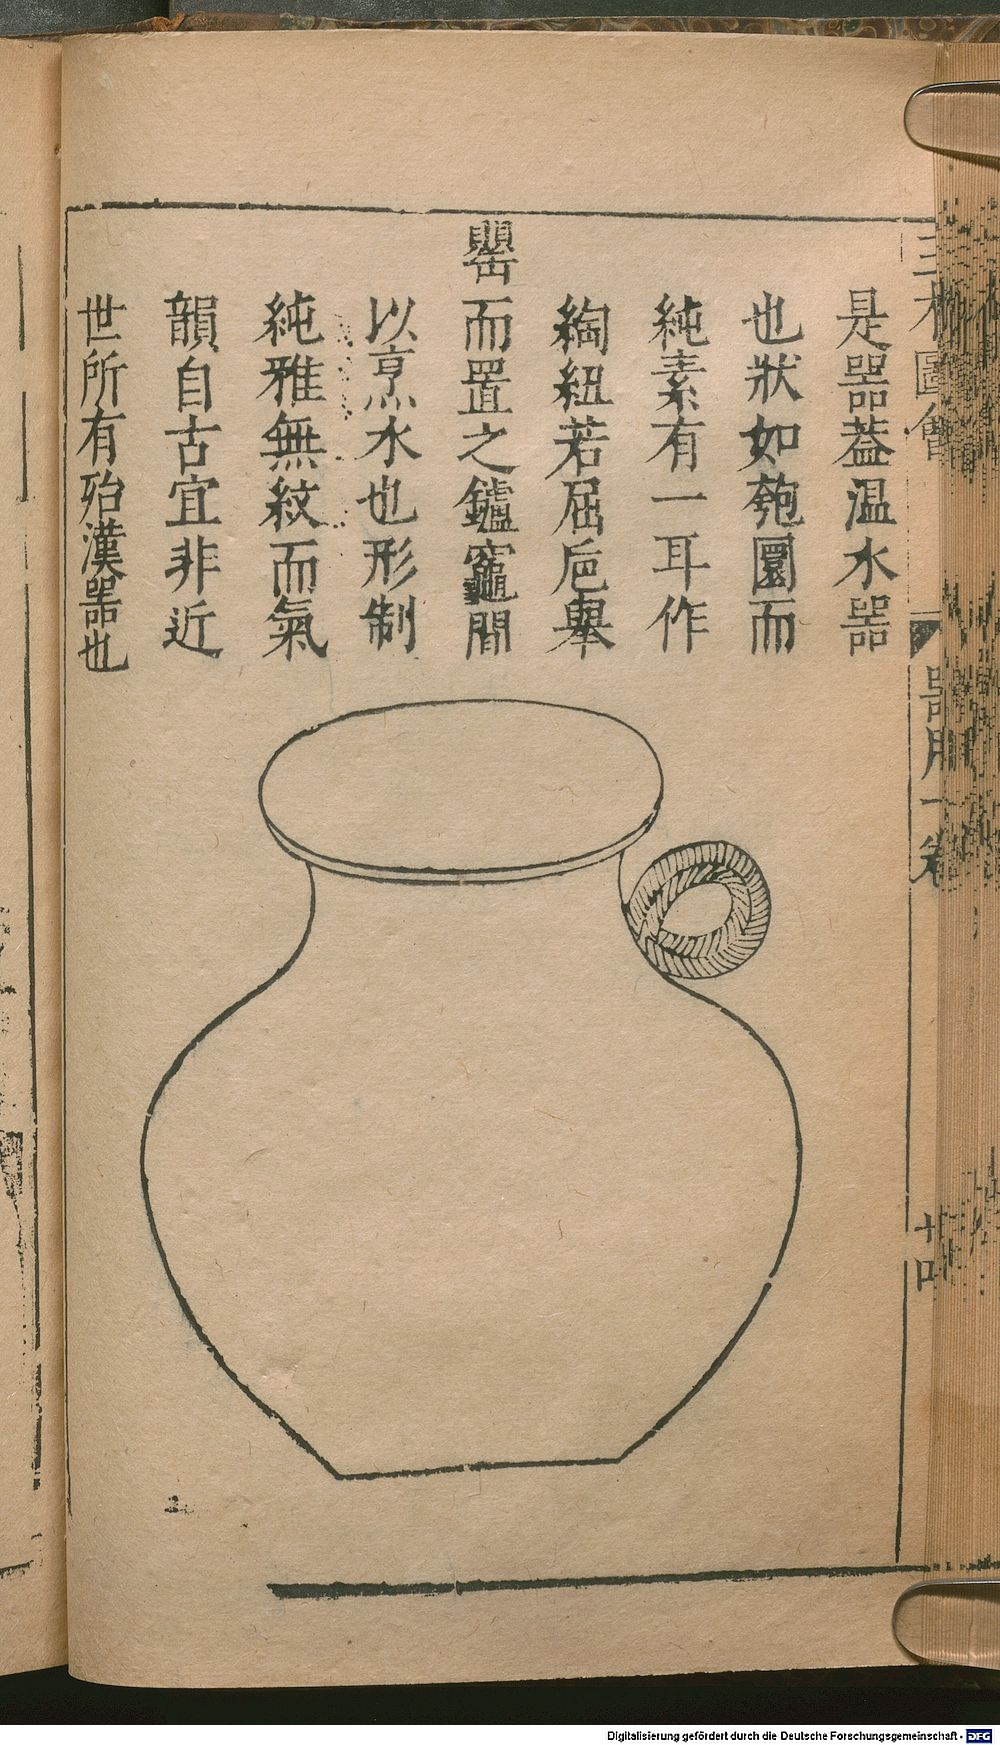 三才圖會
器用一卷
廿四
是器蓋温水器
也狀如匏圜而
純素有一耳作
綯紐若屈巵舉
罌
而置之鑪竈間
以烹水也形制
純雅無紋而氣
韻自古宜非近
世所有殆漢器也
Digitalisierung gefördert durch die Deutsche Forschungsgemeinschaft - DFG